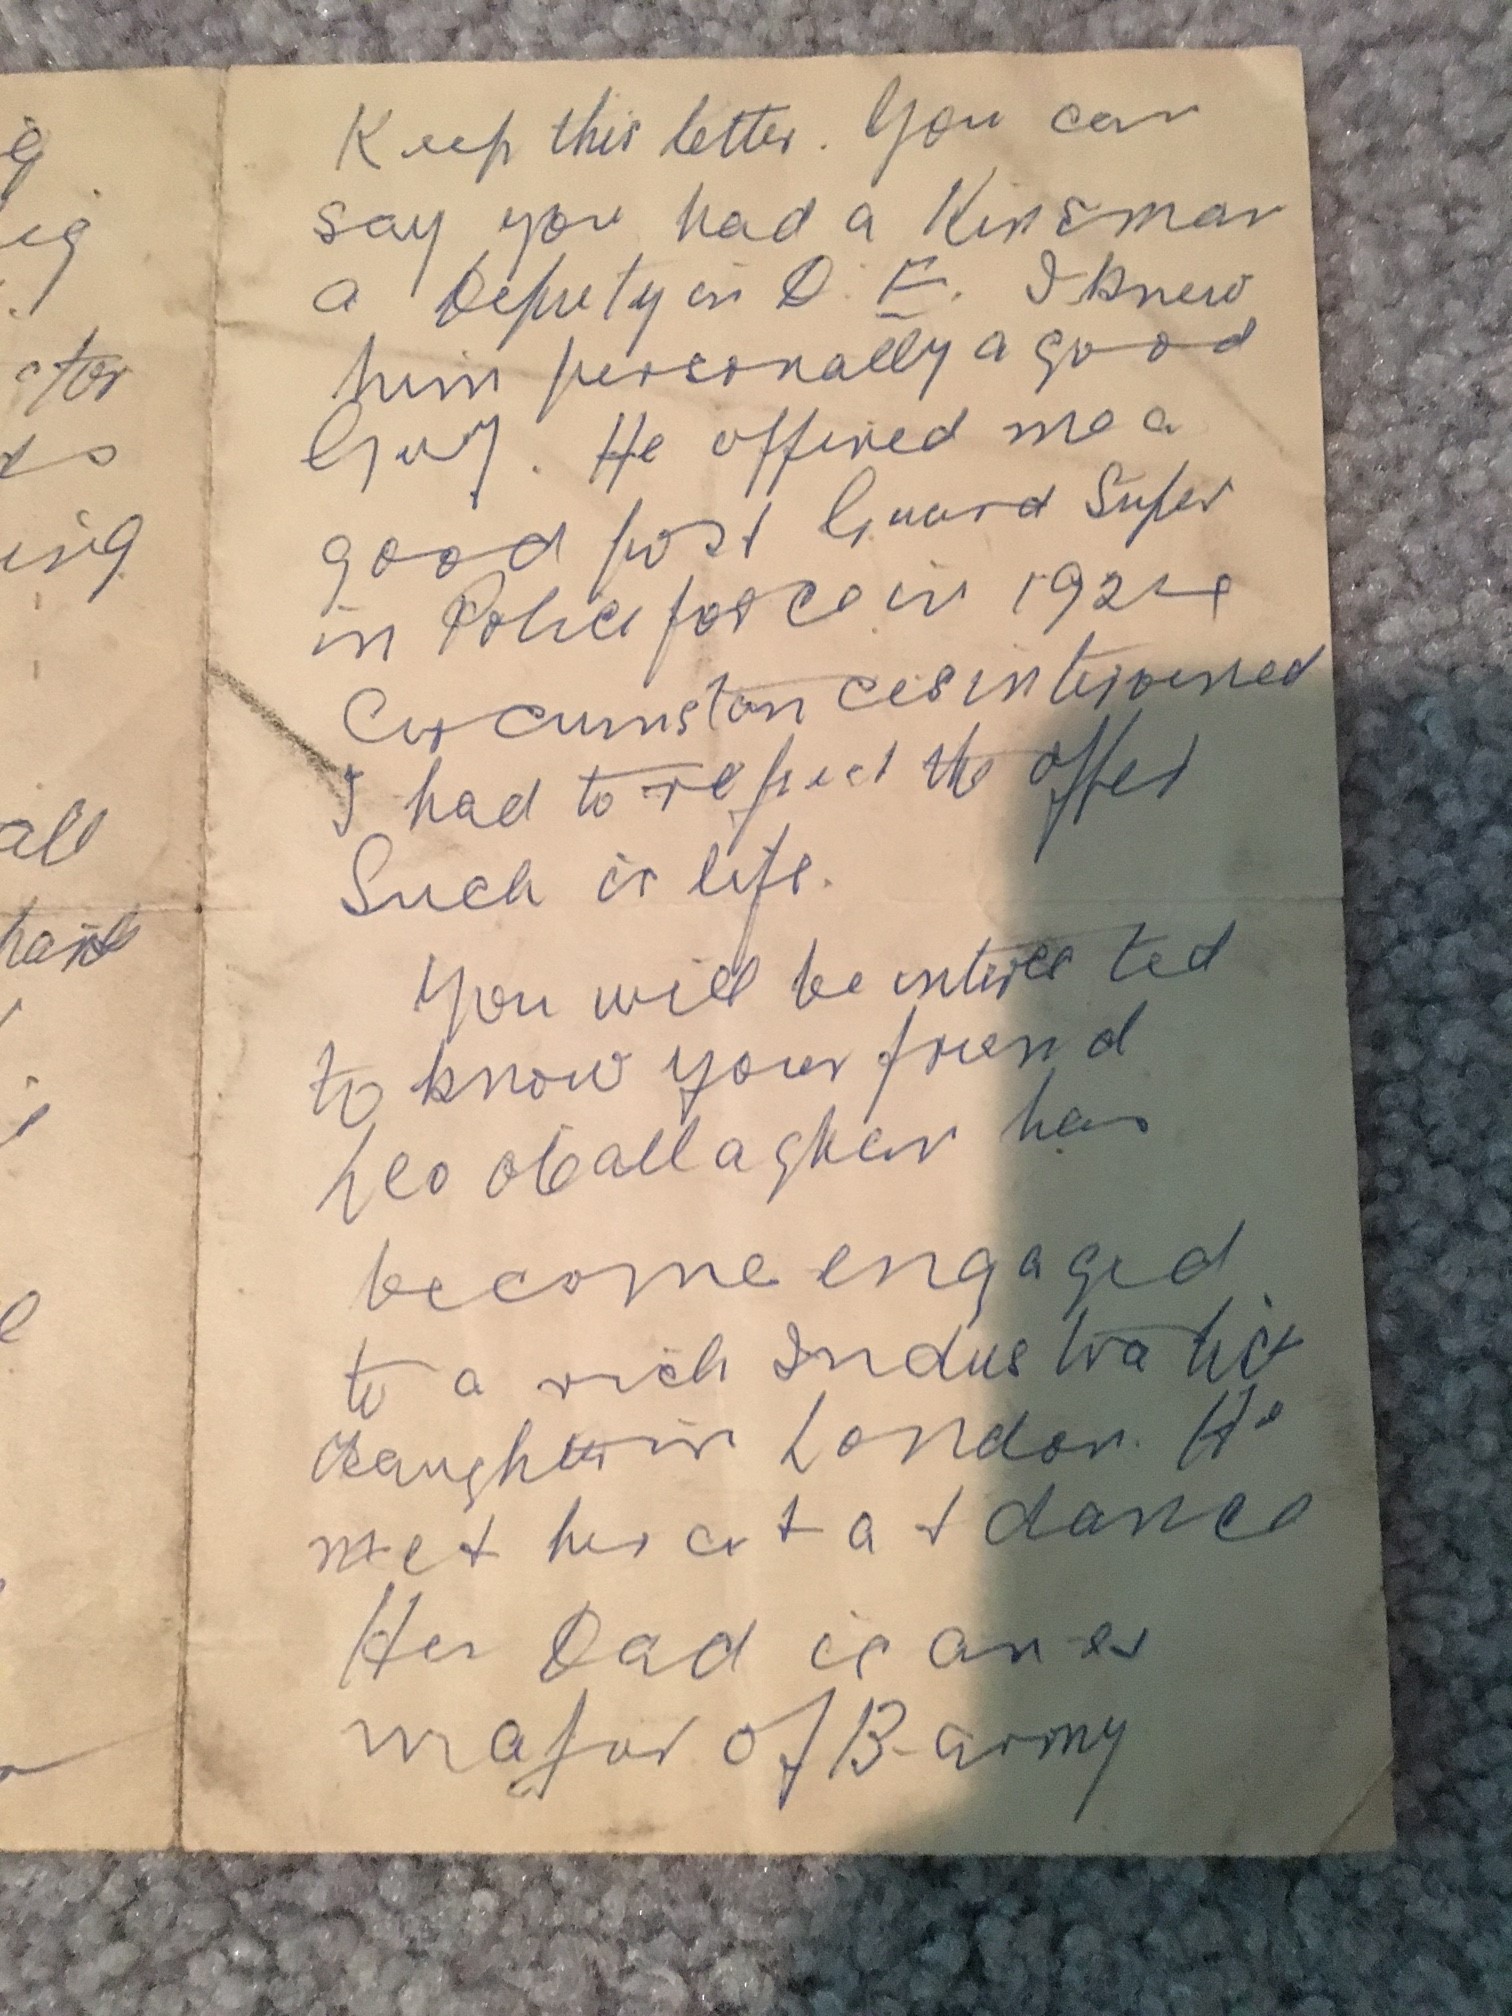 Keep this letter. You can
say you had a Kinsman
a Deputy in D. E. I knew
him personally a good
Guy. He offered me a
good post Guard Super
in Police force in 1924
Circumstances intervened
I had to reject the offer
Such is life.
You will be interested
to know your friend
Leo O Gallagher has
become engaged
to a rich Industralist
daughter in London. He
met her at a dance
Her Dad is an ex
major of B-army
all